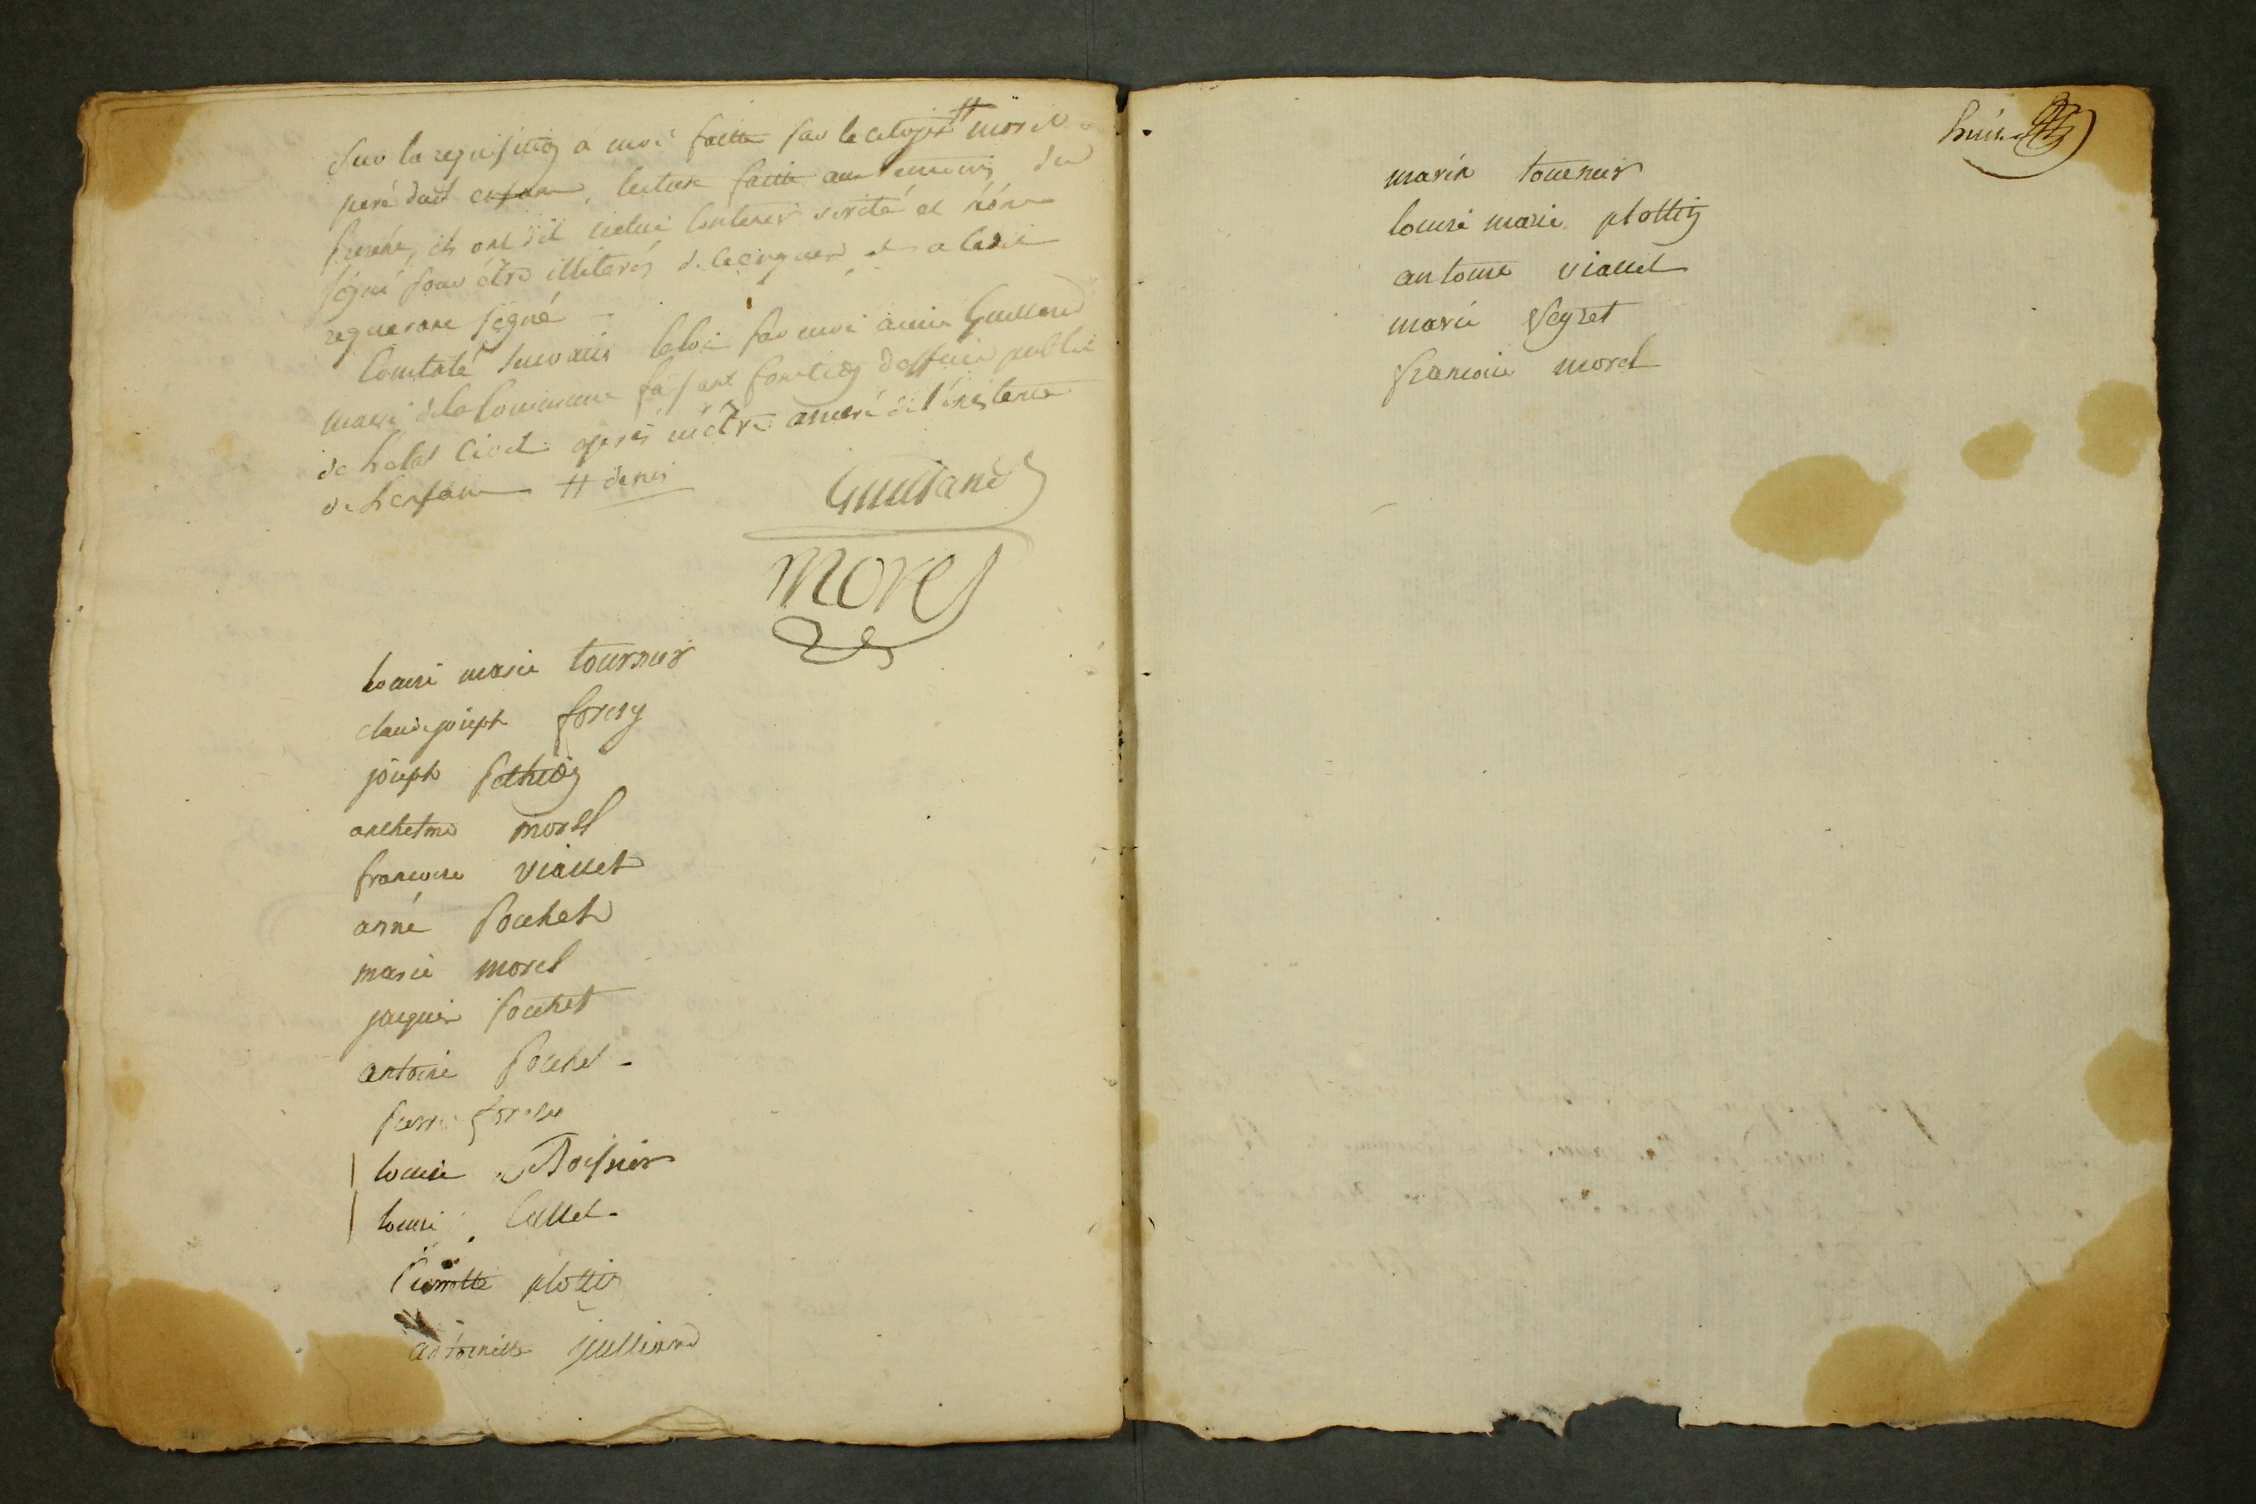 Sur la requisition a moi faitte par le citoyen # morel
peré dudt enfant, lecture faitte aux temoins du
presént, ils ont dit icelui contenir verité et nónt
signé pour étre illiterés de ce enquis et a ledit
requerant signé
Constaté suivant la loi par moi Guilland
maire de la commune faisant fonction dofficier public
de letat civil apres métre assuré de l'éxistence
de lenfant # denis
Guilland
Morel
louise marie tournier
claude joseph forey
joseph
anthelme morel
francoise viallet
anné Pochet
marie morel
jacques Pochet
antoine Pochet
pierre forey
louise Boissier
louise Callet
Pierrette plottin
antoinette julliand
huit
marie tournier
louise marie plottin
antoine viallet
marie Seyzet
francoise morel